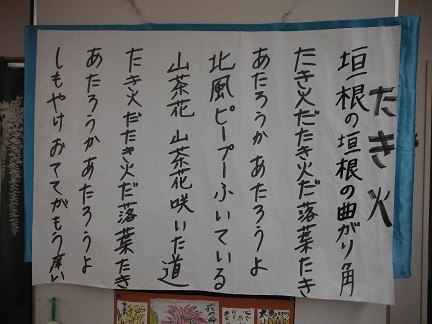 たき火
垣根の垣根の曲がり角
たき火だたき火だ落葉たき
あたろうか あたろうよ
北風ピープーふいている
山茶花 山茶花咲いた道
たき火だたき火だ落葉たき
あたろうか あたろうよ
しもやけおててがもう痒い